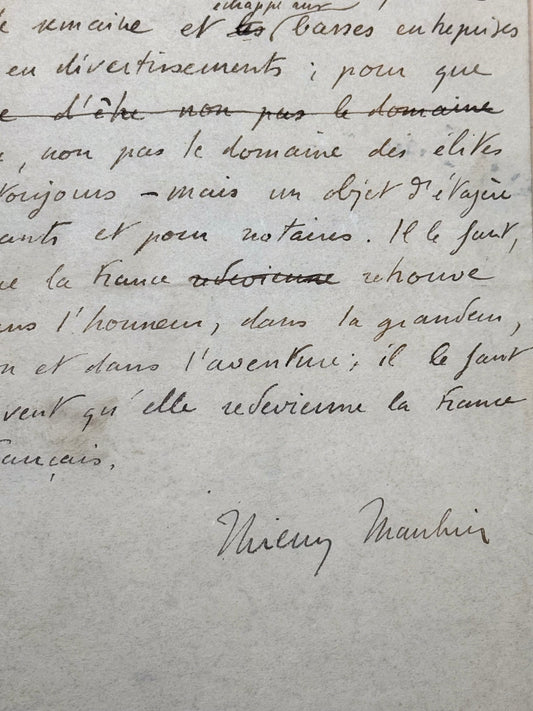 échappe aux
semaine et les basses entreprises
en divertissements ; pour que
e d'être non pas le domaine
, non pas le domaine des élites
toujours – mais un objet d'étagère
ants et pour notaires. Il le faut,
ue la France redevienne retrouve
ans l'honneur, dans la grandeur,
n et dans l'aventure ; il le faut
vent qu'elle redevienne la France
rançais.
Thierry Maulnier